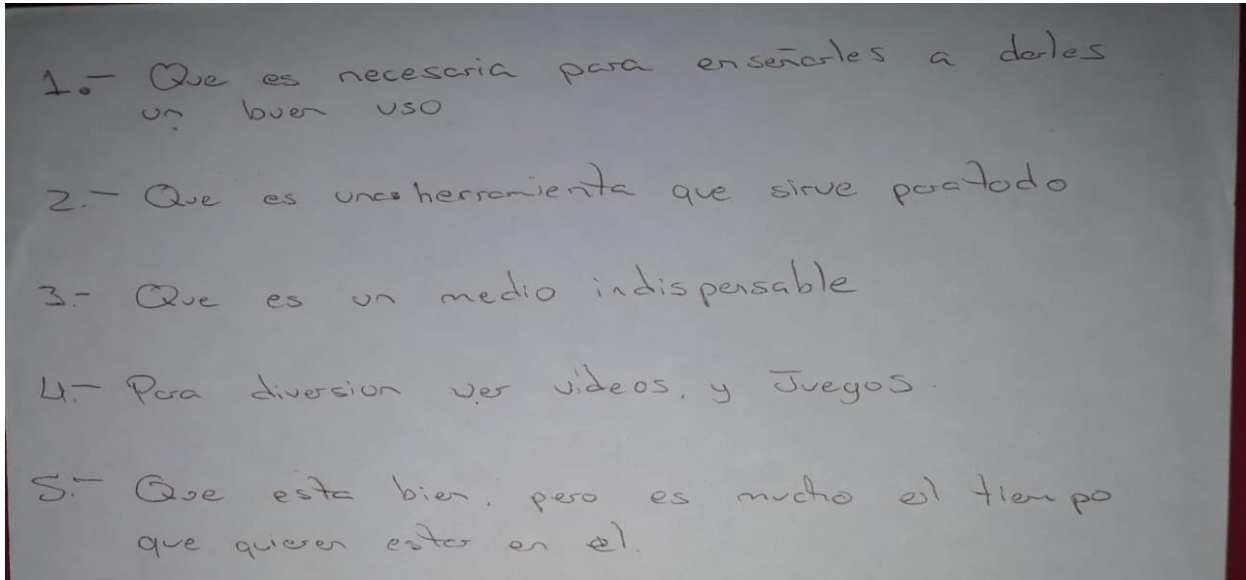 1.- Que es necesaria para enseñarles a darles
un buen uso
2.- Que es una herramienta que sirve para todo
3.- Que es un medio indispensable
4.- Para diversion ver videos, y Juegos.
5.- Que esta bien, pero es mucho el tiempo
que quieren estar en el.